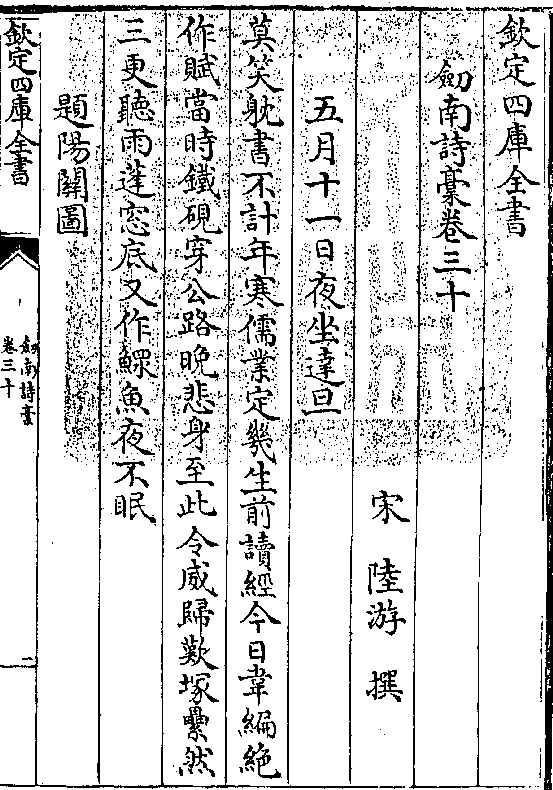 欽定四庫全書
劎南詩稾卷三十
宋　陸游　撰
五月十一日夜坐達旦
莫笑躭書不計年寒儒業定幾生前讀經今日韋編絶
作賦當時鐵硯穿公路晚悲身至此令威歸歎塚纍然
三更聽雨蓬窓底又作鰥魚夜不眠
題陽關圖
欽定四庫全書
劎南詩稾
卷三十